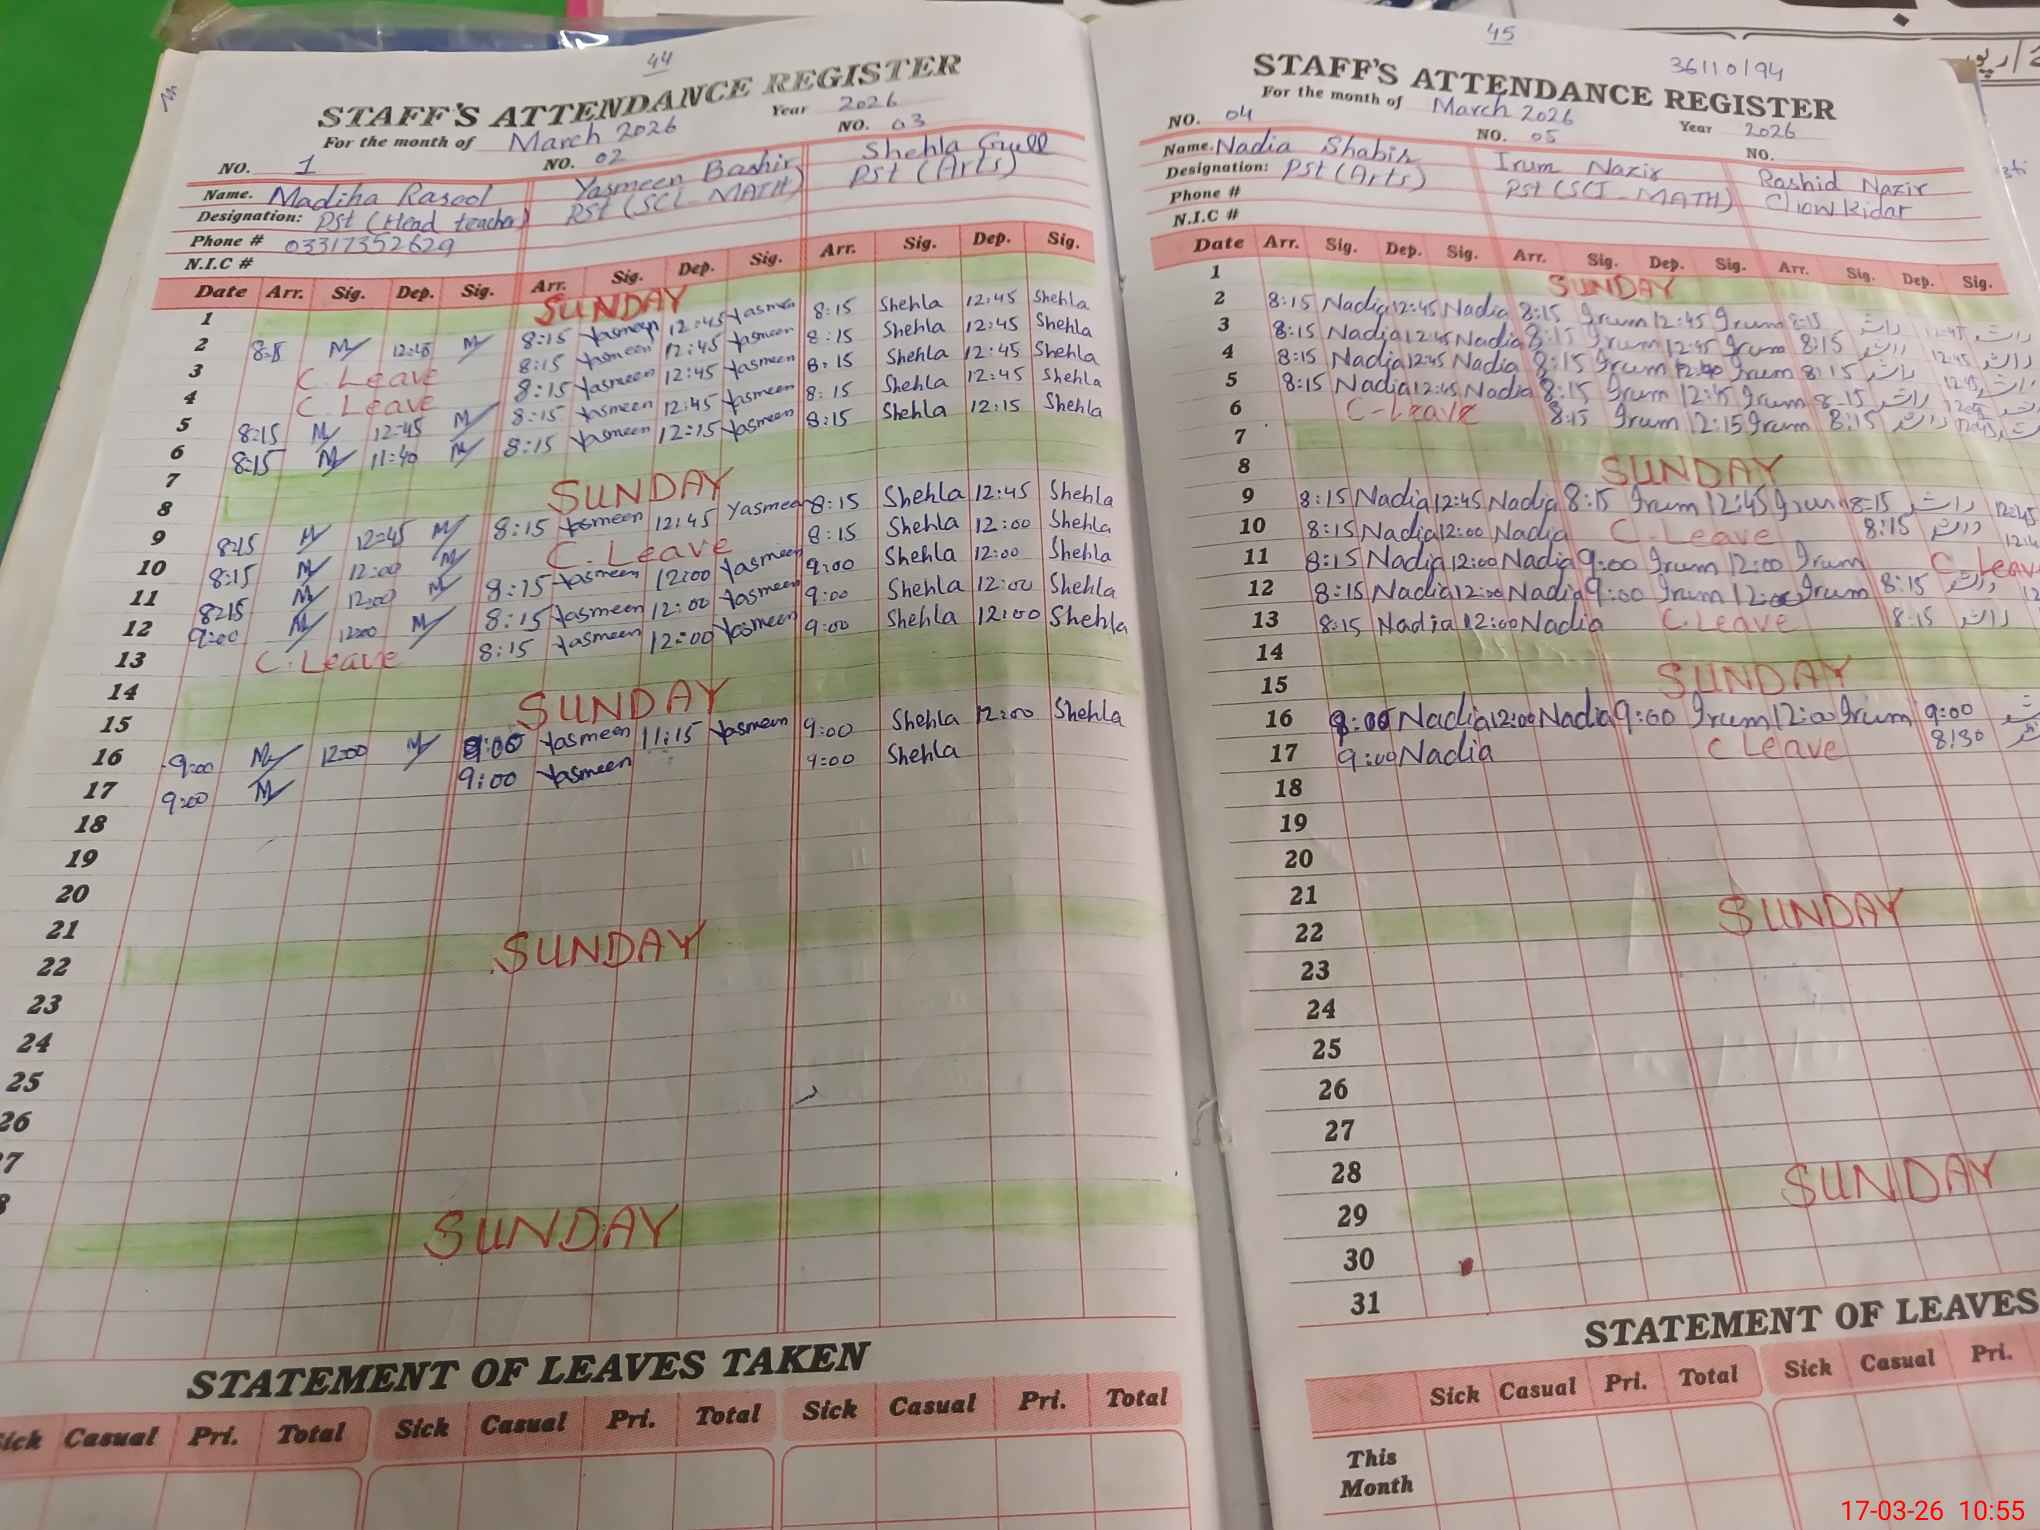 44
STAFF'S ATTENDANCE REGISTER
For the month of March 2026 Year 2026
NO. 1 NO. 02 NO. 03
Name. Madiha Rasool Yasmeen Bashir Shehla Gull
Designation: Pst (Head teacher) PST (SCI-MATH) PST (Arts)
Phone # 03317352629
N.I.C #
Date Arr. Sig. Dep. Sig. Arr. Sig. Dep. Sig. Arr. Sig. Dep. Sig.
1 SUNDAY
2 M 12:45 M 8:15 Yasmeen 12:45 Yasmeen 8:15 Shehla 12:45 Shehla
3 C. Leave 8:15 Yasmeen 12:45 Yasmeen 8:15 Shehla 12:45 Shehla
4 C. Leave 8:15 Yasmeen 12:45 Yasmeen 8:15 Shehla 12:45 Shehla
5 8:15 M 12:45 M 8:15 Yasmeen 12:45 Yasmeen 8:15 Shehla 12:45 Shehla
6 8:15 M 11:40 M 8:15 Yasmeen 12:15 Yasmeen 8:15 Shehla 12:15 Shehla
7
8 SUNDAY
9 8:15 M 12:45 M 8:15 Yasmeen 12:45 Yasmeen 8:15 Shehla 12:45 Shehla
10 8:15 M 12:00 M C. Leave 8:15 Shehla 12:00 Shehla
11 8:15 M 12:00 M 8:15 Yasmeen 12:00 Yasmeen 9:00 Shehla 12:00 Shehla
12 9:00 M 12:00 M 8:15 Yasmeen 12:00 Yasmeen 9:00 Shehla 12:00 Shehla
13 C. Leave 8:15 Yasmeen 12:00 Yasmeen 9:00 Shehla 12:00 Shehla
14
15 SUNDAY
16 9:00 M 12:00 M 9:00 Yasmeen 11:15 Yasmeen 9:00 Shehla 12:00 Shehla
17 9:00 M 9:00 Yasmeen 9:00 Shehla
18
19
20
21
22 SUNDAY
23
24
25
26
7
SUNDAY
STATEMENT OF LEAVES TAKEN
Sick Casual Pri. Total Sick Casual Pri. Total Sick Casual Pri. Total
45
36110194
STAFF'S ATTENDANCE REGISTER
For the month of March 2026 Year 2026
NO. 04 NO. 05 NO.
Name. Nadia Shabir Irum Nazir Rashid Nazir
Designation: PST (Arts) PST (SCI-MATH) Chowkidar
Phone #
N.I.C #
Date Arr. Sig. Dep. Sig. Arr. Sig. Dep. Sig. Arr. Sig. Dep. Sig.
1 SUNDAY
2 8:15 Nadia 12:45 Nadia 8:15 Irum 12:45 Irum 8:15 راشد 12:45 راشد
3 8:15 Nadia 12:45 Nadia 8:15 Irum 12:45 Irum 8:15 راشد 12:45 راشد
4 8:15 Nadia 12:45 Nadia 8:15 Irum Irum 8:15 راشد 12:45 راشد
5 8:15 Nadia 12:45 Nadia 8:15 Irum 12:45 Irum 8:15 راشد
6 C-Leave 8:15 Irum 12:15 Irum 8:15 راشد
7
8 SUNDAY
9 8:15 Nadia 12:45 Nadia 8:15 Irum 12:45 Irum 8:15 راشد 12:45
10 8:15 Nadia 12:00 Nadia C. Leave 8:15 راشد
11 8:15 Nadia 12:00 Nadia 9:00 Irum 12:00 Irum C. Leave
12 8:15 Nadia 12:00 Nadia 9:00 Irum 12:00 Irum 8:15 راشد 12
13 8:15 Nadia 12:00 Nadia C. Leave 8:15 راشد
14
15 SUNDAY
16 9:00 Nadia 12:00 Nadia 9:00 Irum 12:00 Irum 9:00
17 9:00 Nadia C Leave 8:30
18
19
20
21
22 SUNDAY
23
24
25
26
27
28
29 SUNDAY
30
31
STATEMENT OF LEAVES
Sick Casual Pri. Total Sick Casual Pri.
This
Month
17-03-26 10:55